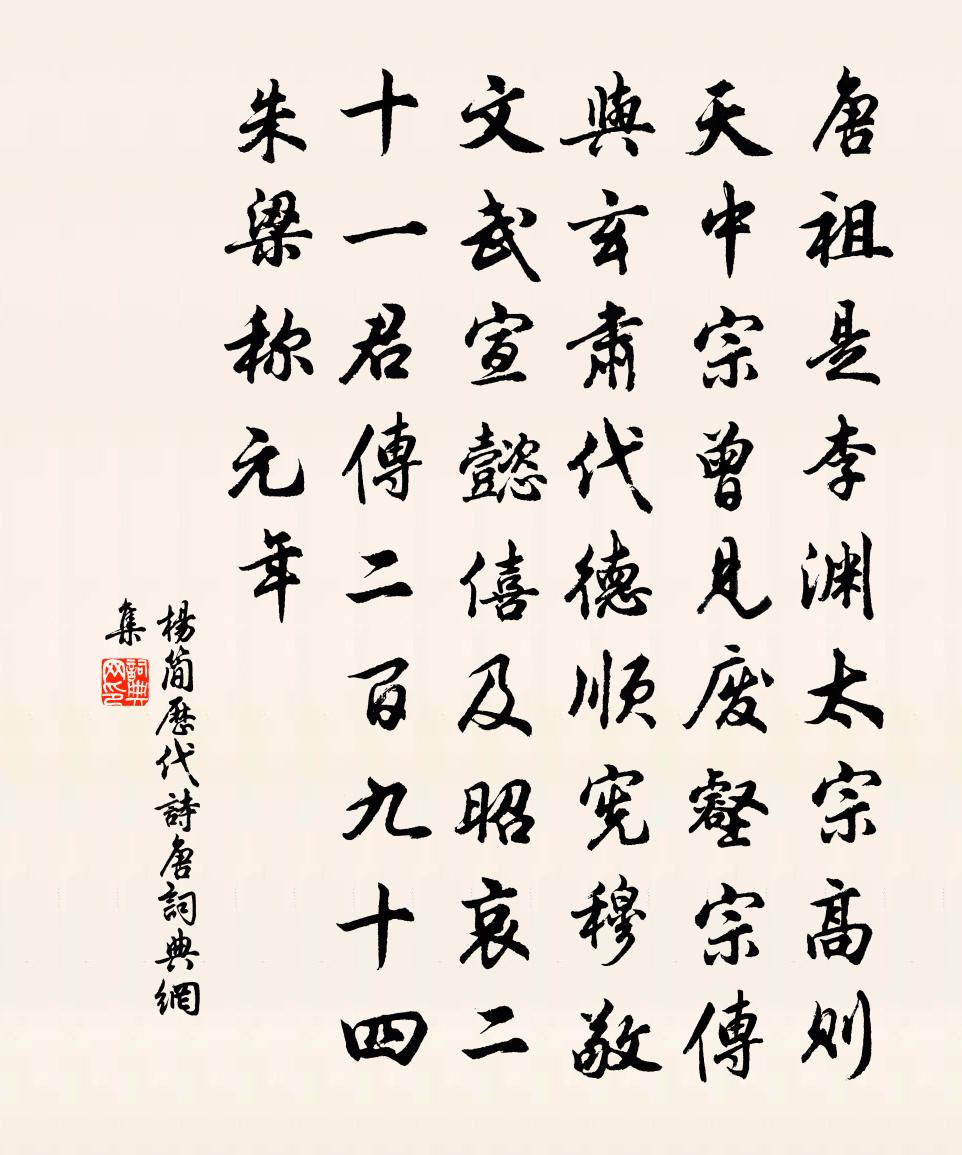 唐祖是李渊太宗高则
天中宗曾见废睿宗傳
與玄肅代德順宪穆敬
文武宣懿僖及昭哀二
十一君傳二百九十四
朱梁称元年
楊簡歷代詩唐詞典網
集
詞典网印